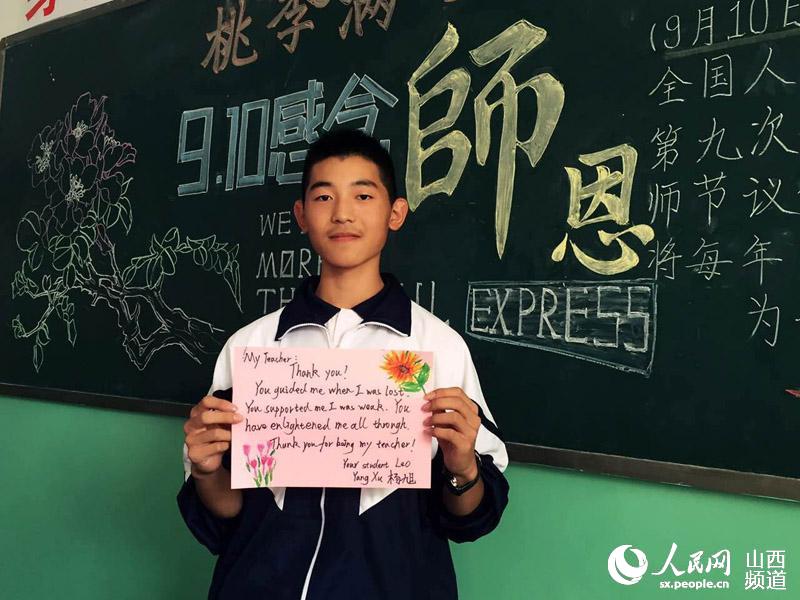 桃李满
9.10感念師恩
(9月10日
全国人
第九次
师节议
将每年
为
WE
MOR
TH
EXPRESS
My Teacher:
Thank you!
You guided me when I was lost.
You supported me I was weak. You
have enlightened me all through.
Thank you for being my teacher!
Your student Leo
Yang Xu 杨旭
人民网
sx.people.cn
山西
频道